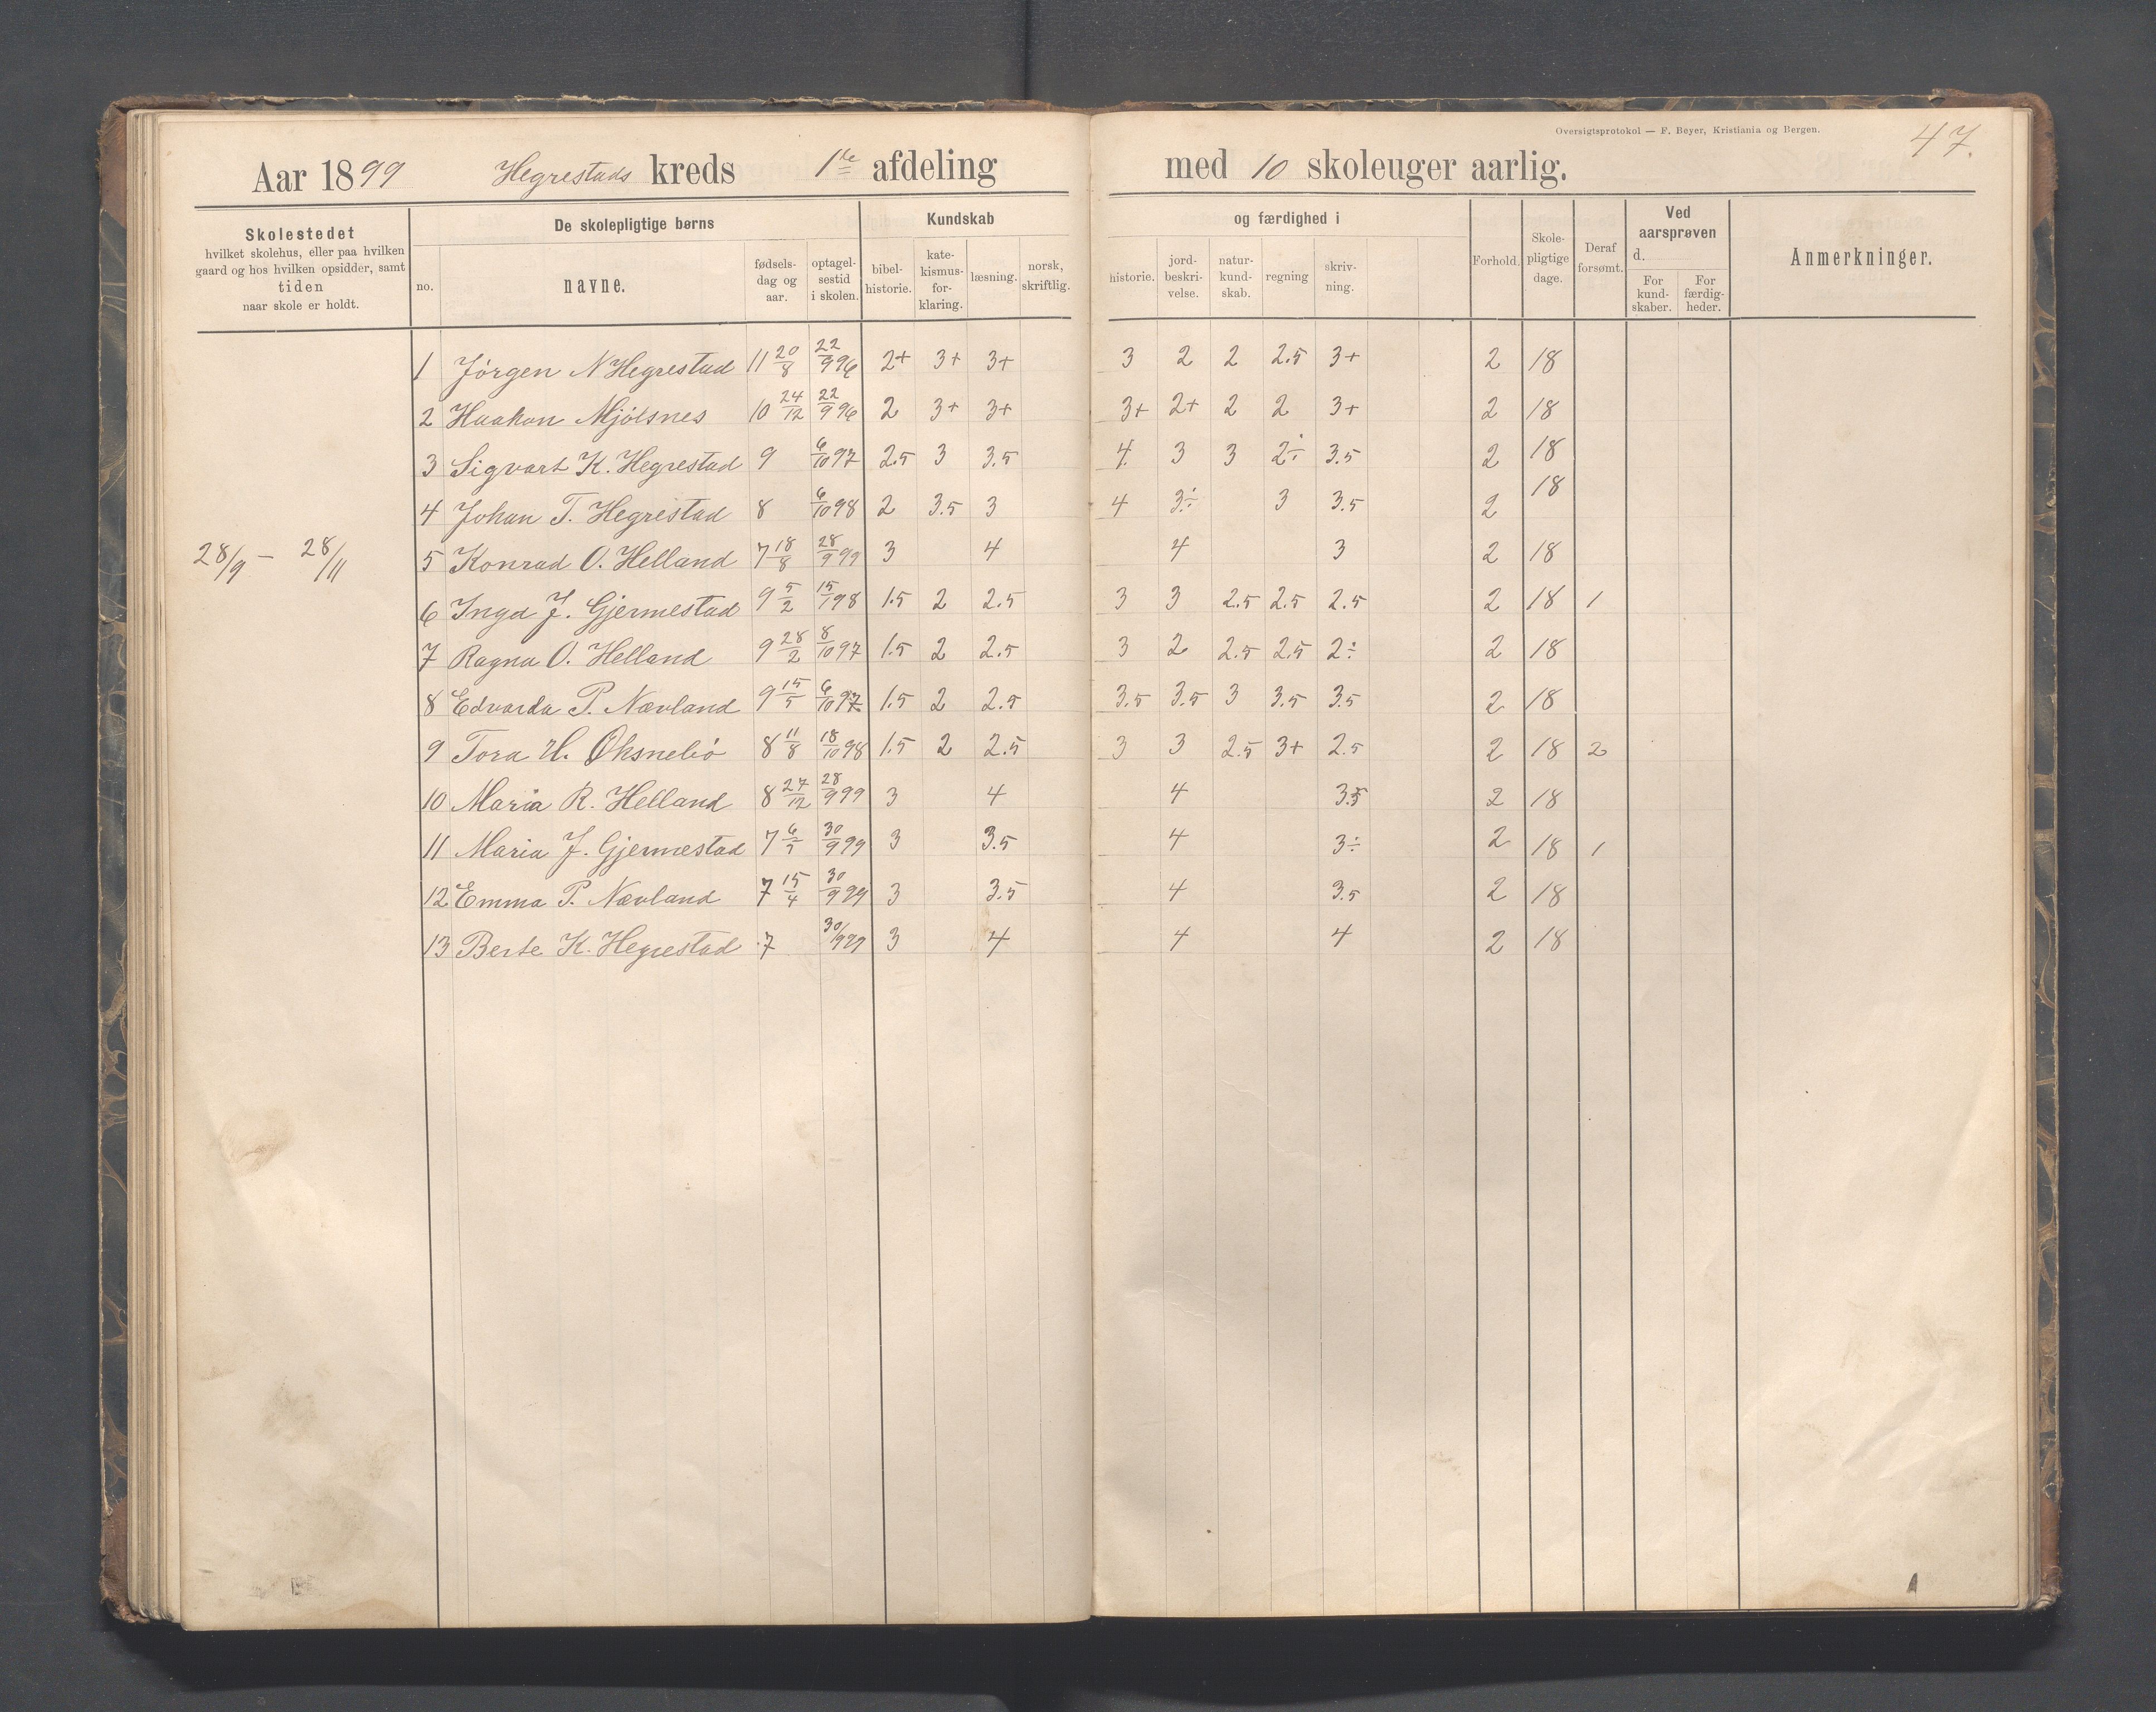 Oversigtsprotokol — F. Beyer, Kristiania og Bergen.
47.
Aar 1899 Hegrestads kreds 1ste afdeling med 10 skoleuger aarlig.
Skolestedet
hvilket skolehus, eller paa hvilken
gaard og hos hvilken opsidder, samt
tiden
naar skole er holdt.
De skolepligtige børns
no.
navne.
fødsels-
dag og
aar.
optagel-
sestid
i skolen.
Kundskab
bibel-
historie.
kate-
kismus-
for-
klaring.
læsning.
norsk,
skriftlig.
og færdighed i
historie.
jord-
beskri-
velse.
natur-
kund-
skab.
regning
skriv-
ning.
Forhold.
Skole-
pligtige
dage.
Deraf
forsømt.
Ved
aarsprøven
d.
For
kund-
skaber.
For
færdig-
heder.
Anmerkninger.
1 Jørgen N Hegrestad 11 20/8 22/9 96 2+ 3+ 3+ 3 2 2 2.5 3+ 2 18
2 Haakon Mjølsnes 10 24/12 22/9 96 2 3+ 3+ 3+ 2+ 2 2 3+ 2 18
3 Sigvart K. Hegrestad 9 6/10 97 2.5 3 3.5 4. 3 3 2÷ 3.5 2 18
4 Johan T. Hegrestad 8 6/10 98 2 3.5 3 4 3÷ 3 3.5 2 18
28/9 — 28/11
5 Konrad O. Helland 7 18/8 28/9 99 3 4 4 3 2 18
6 Inga J. Gjermestad 9 5/2 15/1 98 1.5 2 2.5 3 3 2.5 2.5 2.5 2 18 1
7 Ragna O. Helland 9 28/2 8/10 97 1.5 2 2.5 3 2 2.5 2.5 2÷ 2 18
8 Edvarda P. Nævland 9 15/5 6/10 97 1.5 2 2.5 3.5 3.5 3 3.5 3.5 2 18
9 Tora H. Øksnebø 8 11/8 18/10 98 1.5 2 2.5 3 3 2.5 3+ 2.5 2 18 2
10 Maria R. Helland 8 27/12 28/9 99 3 4 4 3.5 2 18
11 Maria J. Gjermestad 7 6/5 30/9 99 3 3.5 4 3÷ 2 18 1
12 Emma P. Nævland 7 15/4 30/9 99 3 3.5 4 3.5 2 18
13 Berte K. Hegrestad 7 30/9 99 3 4 4 4 2 18